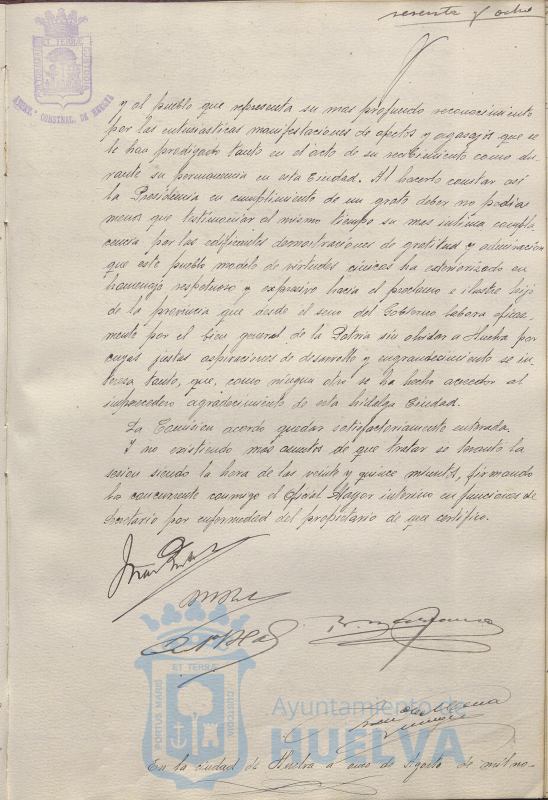 sesenta y ocho
AYUNT.º CONSTNAL. DE HUELVA
y al pueblo que representa su mas profundo reconocimiento
por las entusiásticas manifestaciones de afectos y agasajos que se
le han prodigado tanto en el acto de su recibimiento como du-
rante su permanencia en esta Ciudad. Al hacerlo constar así
la Presidencia en cumplimiento de un grato deber no podia
menos que testimoniar al mismo tiempo su mas intima compla
cencia por las edificantes demostraciones de gratitud y admiracion
que este pueblo modelo de virtudes civicas ha exteriorizado en
homenaje respetuoso y expresivo hacia el preclaro e ilustre hijo
de la provincia que desde el seno del Gobierno labora eficaz-
mente por el bien general de la Patria sin olvidar a Huelva por
cuyas justas aspiraciones de desarrollo y engrandecimiento se in-
teresa tanto, que, como ningun otro se ha hecho acreedor al
imperecedero agradecimiento de esta hidalga Ciudad.
La Comision acordo quedar satisfactoriamente enterada.
Y no existiendo mas asuntos de que tratar se levanto la
sesion siendo la hora de las veinte y quince minutos, firmando
los concurrente conmigo el Oficial Mayor interino en funciones de
Secretario por enfermedad del propietario de que certifico.
ET TERRÆ
PORTUS MARIS
CUSTODIA
Ayuntamiento de
HUELVA
En la ciudad de Huelva a ocho de Agosto de mil no-